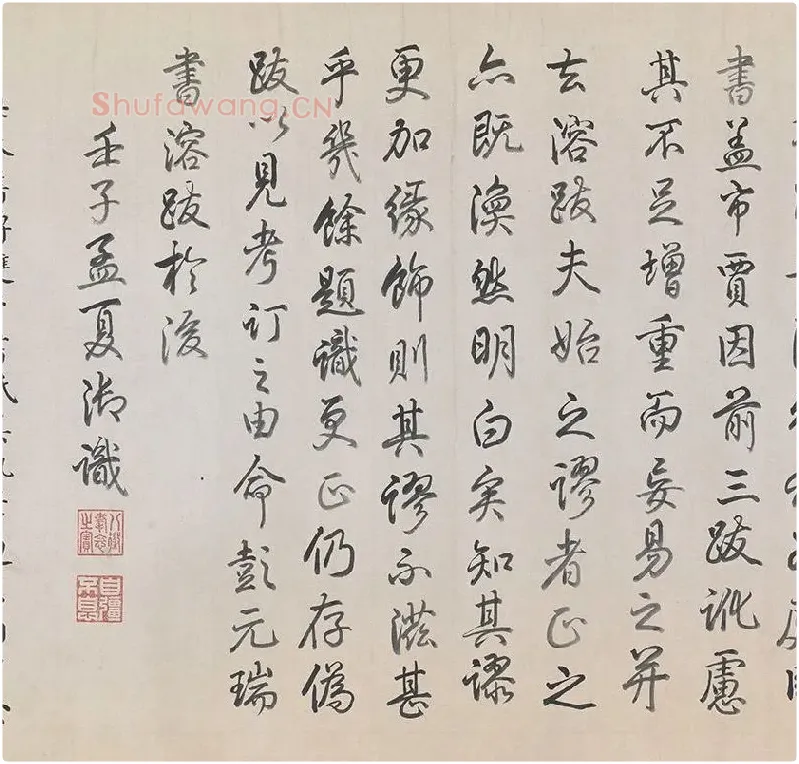 書盖市賈因前三跋訛慮
其不足增重而妄易之并
去溶跋夫始之謬者正之
亦既渙然明白矣知其謬
更加緣飾則其謬不滋甚
乎幾餘題識更正仍存偽
跋以見考訂之由命彭元瑞
書溶跋於後
壬子孟夏御識
八徵耄念之寶
自彊不息
Shufawang.CN